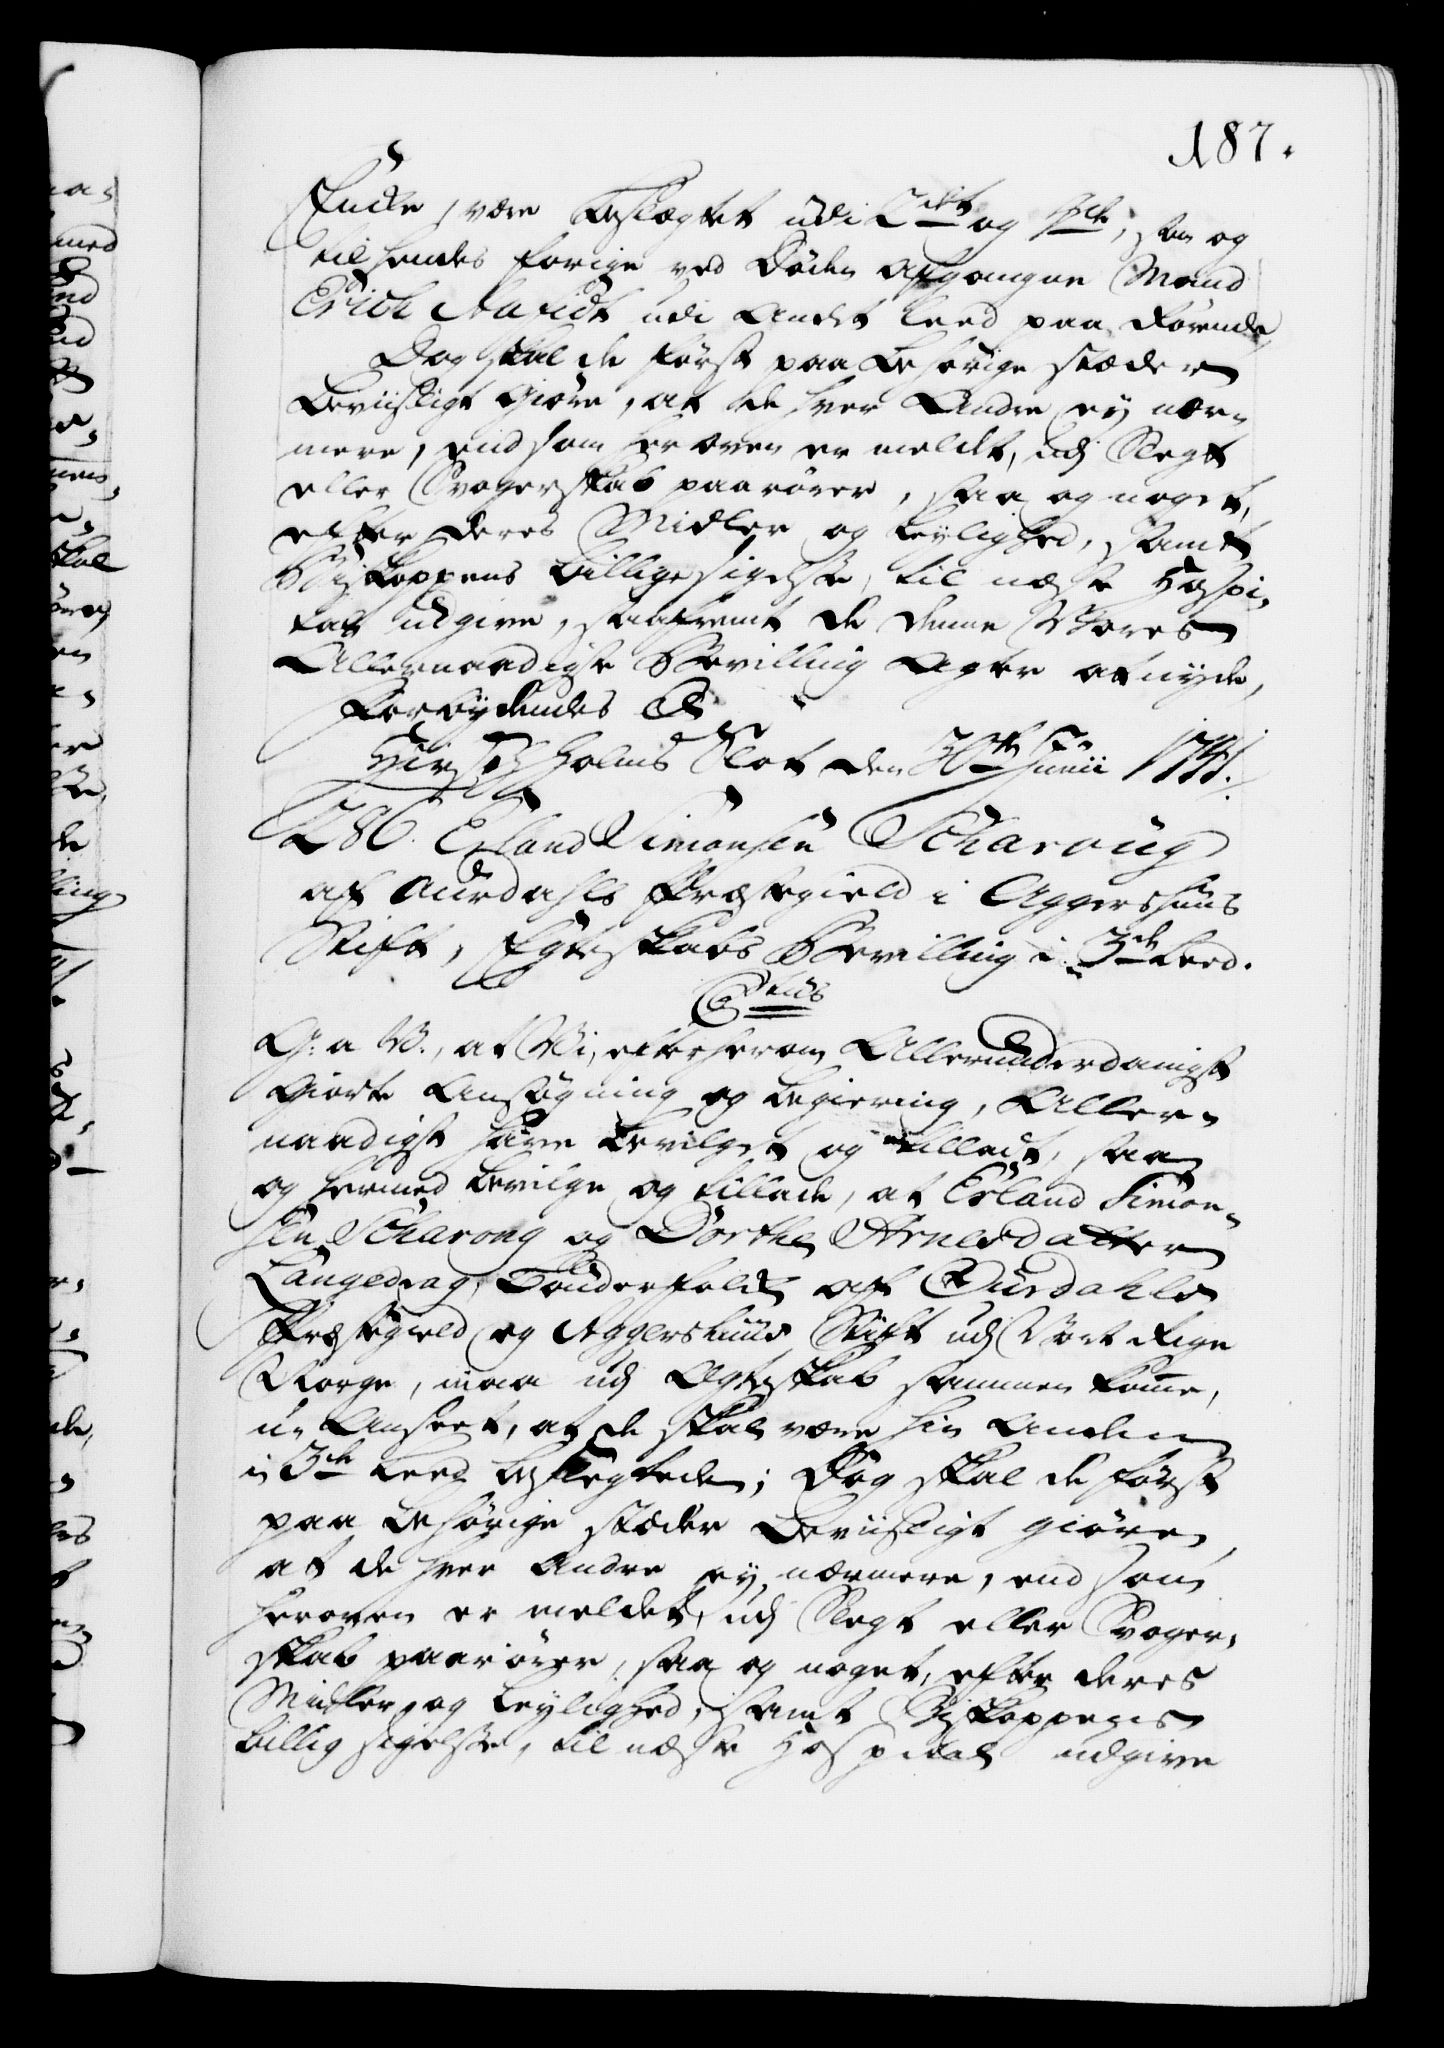 187.
Ende, være beslægtet udi 2det og 3die, saa og
til hendes forige ved Døden afgangne Mand
Erich udi andet Leed paarørende,
Dog skal de først paa behørige stæder
beviisligt giøre, at de hver andre ey nær-
mere, end som her oven er meldt, udj Slegt
eller Svogerskab paarører, saa og noget,
efter deres Midler og Leylighed, samt
Biskoppens billige sigelse, til næste Hospi-
tal udgive, saafremt de denne Vores
Allernaadigste Bevilling agter at nyde,
Forbydendes &
Hirschholms Slot den 30te Junii 1741.
286. Erland Simonsen Scharoug
af Aurdahls Præstegield i Aggershuus
Stift, Egteskabs Bevilling i 3die Leed.
G: a V., at Vi, efter herom Allerunderdanigst
giorte Ansøgning og begiering, Aller-
naadigst have bevilget og tilladt, saa
og hermed bevilge og tillade, at Erland Simon-
sen Scharoug og Dorthe Arnesdatter
Langedrag, Tønderfolch af Ourdahls
Præstegield og Aggershuus Stift udj Vort Rige
Norge, maa udj Ægteskab sammen komme,
u-anseet, at de skal være hin anden
i 3die Leed beslegtede; Dog skal de først
paa behørige stæder beviisligt giøre,
at de hver andre ey nærmere, end som
heroven er meldet, udj Slegt eller Svoger-
skab paarører, saa og noget, efter deres
Midler og Leylighed, samt Biskoppens
billig sigelse, til næste Hospital udgive